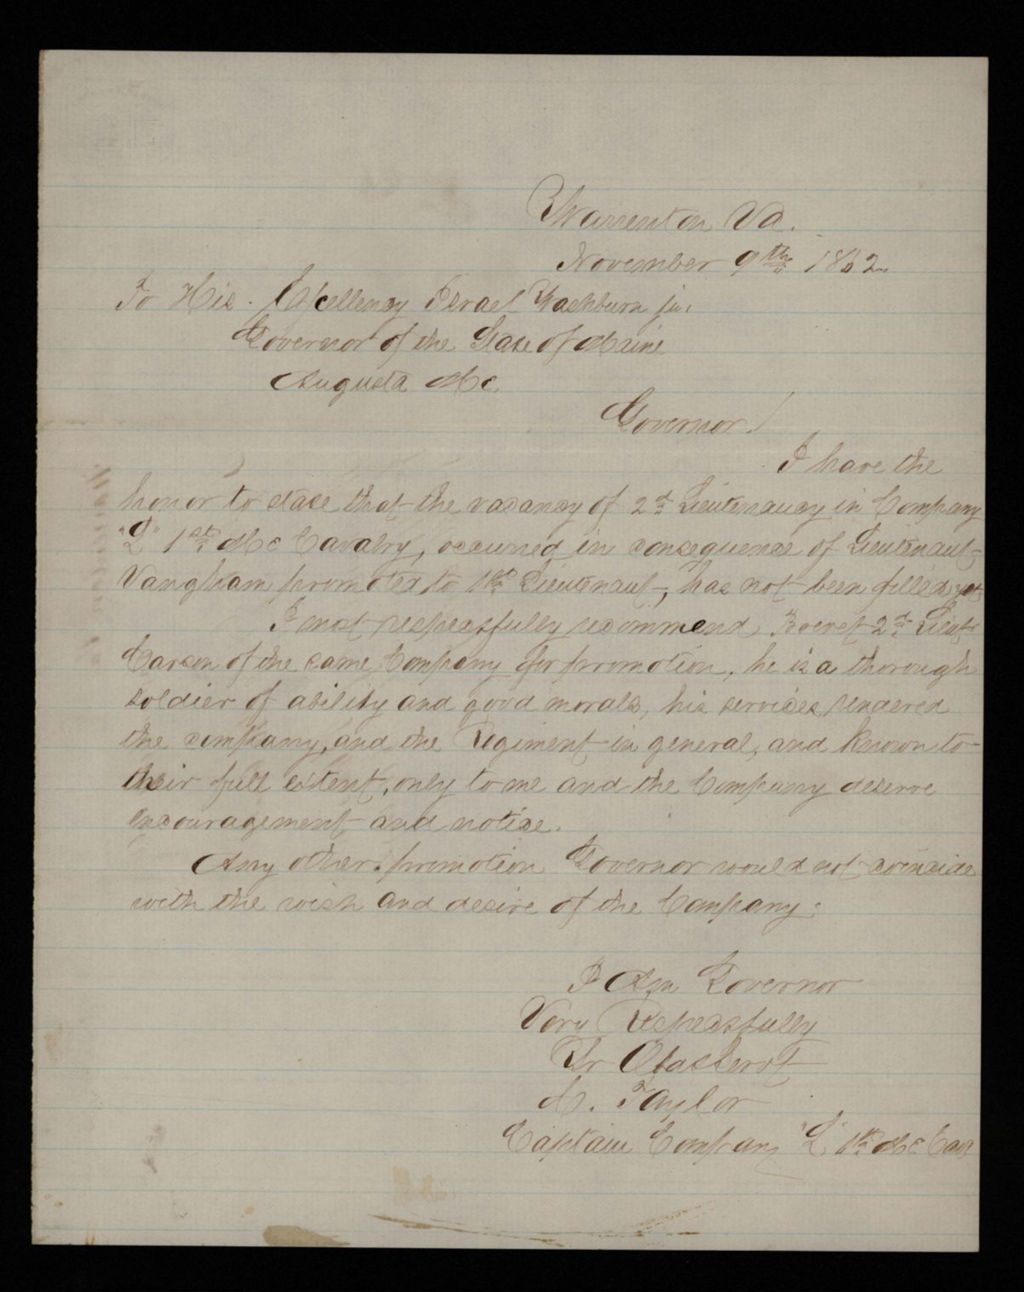 Warrenton Va.
November 9th 1862
To His Excellency Israel Washburn jr.
Governor of the State of Maine
Augusta Me
Governor!
I have the
honor to state that the vacancy of 2d Lieutenancy in Company
"L" 1st Me Cavalry, occurred in consequence of Lieutenant
Vaugham promoted to 1st Lieutenant, has not been filled yet
I most respectfully recommend Brevet 2d Lieut
Carson of the same Company for promotion, he is a thorough
soldier of ability and good morals, his services rendered
the company, and the Regiment in general, and known to
their full extent, only to me and the Company deserve
encouragement and notice.
Any other promotion Governor would not coincide
with the wish and desire of the Company.
I Am Governor
Very Respectfully
Yr Obt Servt
Taylor
Captain Company "L" 1st Me Cav